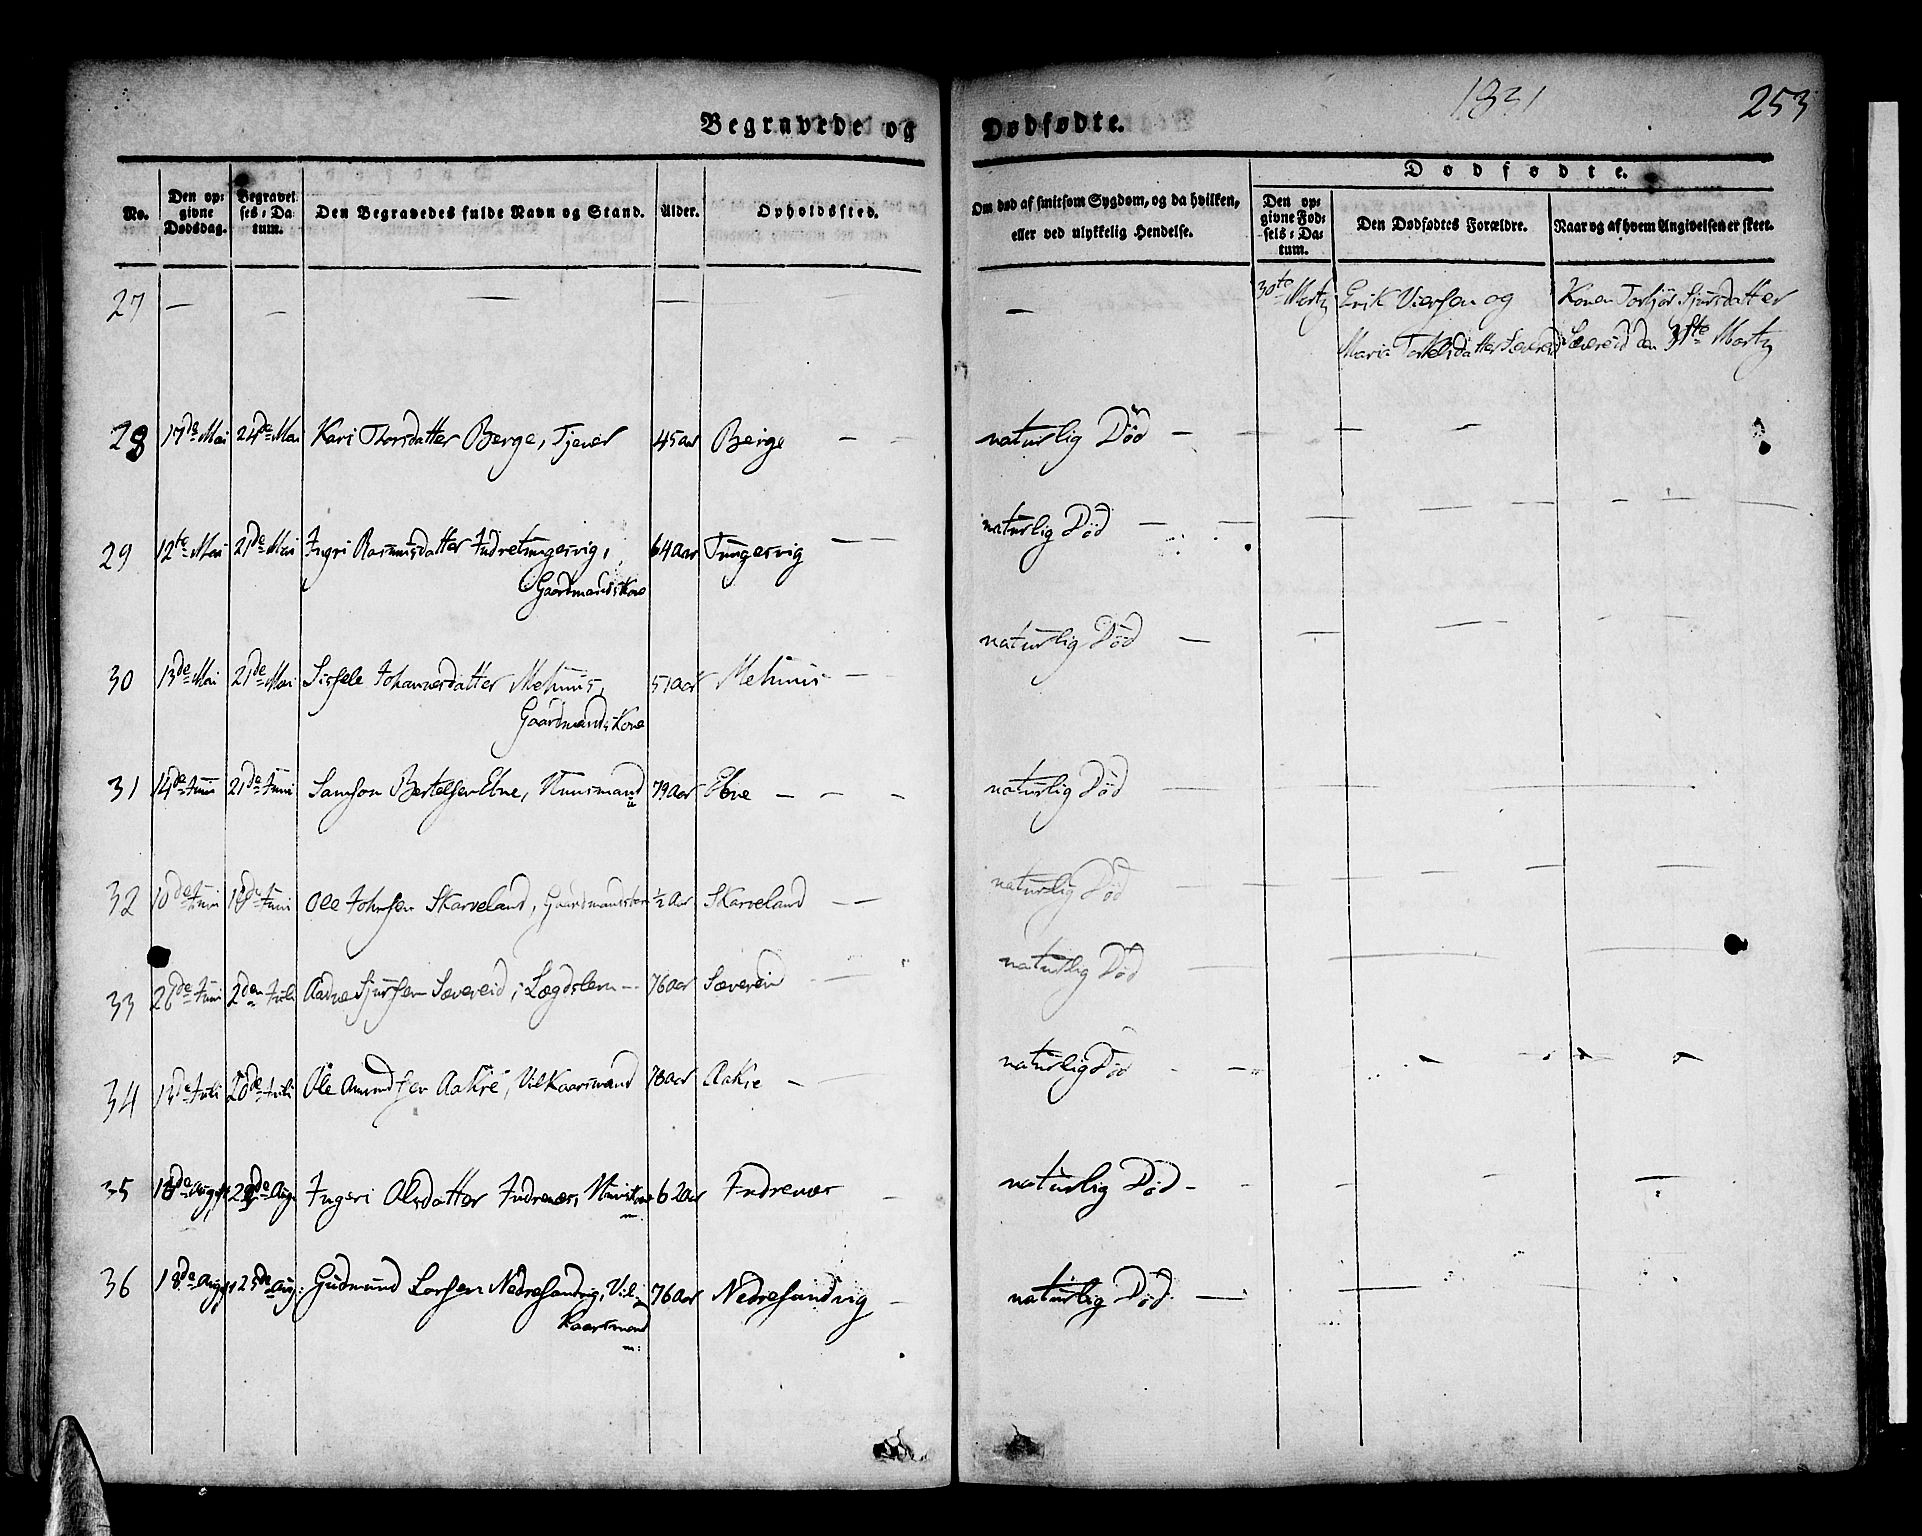 Begravede og Dødfødte.
1831
253
No.
Den opgivne Dødsdag.
Begravelses-Datum.
Den Begravedes fulde Navn og Stand.
Alder.
Opholdssted.
Om død af smitsom Sygdom, og da hvilken,
eller ved ulykkelig Hendelse.
Dødfødte.
Den opgivne Fødsels-Datum.
Den Dødfødtes Forældre.
Naar og af hvem Angivelsen er skeet.
27 — — — — — — 30te Marty Erik Viersen og Konen Torbjør Sjursdatter
Maria Torkelsdatter Sævereid Sævereid den 31te Marty
28 17de Mai 24de Mai Kari Thorsdatter Berge, Tjener 45 Aar Berge — — naturlig Død — — — —
29 12te Mai 21de Mai Ingri Rasmusdatter Indretungesvig, 64 Aar Tungesvig — — naturlig Død — — — —
Gaardmands Kone
30 13de Mai 21de Mai Sissele Johannesdatter Mehuus, 51 Aar Mehuus — — naturlig Død — — — —
Gaardmands Kone
31 14de Juni 21de Juni Samson Bertelsen Ebne, Huusmand 79 Aar Ebne — — — naturlig Død — — —
32 10de Juni 18de Juni Ole Johnsen Skarveland, Gaardmandsbarn ½ Aar Skarveland — — naturlig Død — — — —
33 26de Juni 2den Juli Aadne Sjursen Sævereid, Lægdslem — 76 Aar Sævereid — naturlig Død — — —
34 13de Juli 20de Juli Ole Amundsen Aakre, Vilkaarsmand 78 Aar Aakre — — naturlig Død — — —
35 18de Aug. Aug. Ingeri Olsdatter Indrenæs, 62 Aar Indrenæs — naturlig Død — — — —
36 18de Aug. 25de Aug: Gudmund Larsen Nedresandvig, Vil- 76 Aar Nedresandvig — naturlig Død — — —
kaarsmand